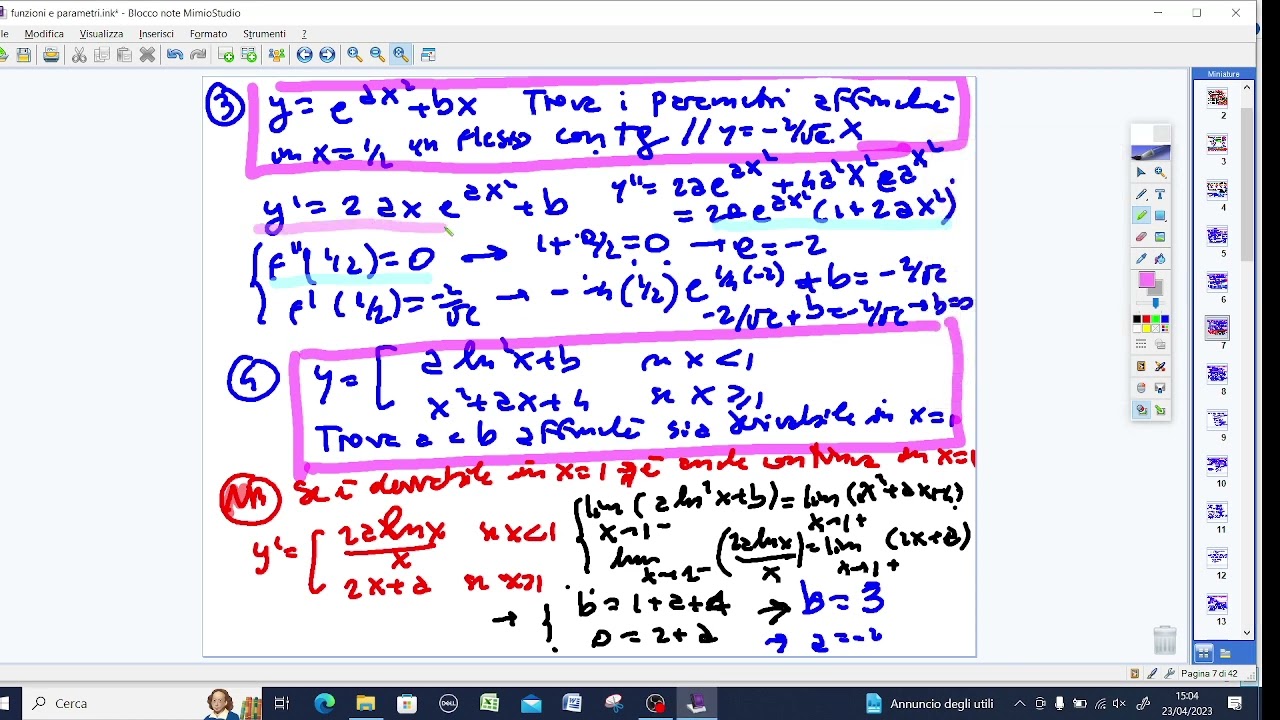 funzioni e parametri.ink* - Blocco note MimioStudio
le Modifica Visualizza Inserisci Formato Strumenti ?
③ y = e^{ax²} + bx Trova i parametri affinché
in x = 1/2 un flesso con tg // y = -2/√e · x
y' = 2ax e^{ax²} + b y'' = 2ae^{ax²} + 4a²x² e^{ax²}
= 2a e^{ax²} (1 + 2ax²)
f''(1/2) = 0 → 1 + a/2 = 0 → a = -2
f'(1/2) = -2/√e → -4(1/2) e^{1/4(-2)} + b = -2/√e
-2/√e + b = -2/√e → b = 0
④ y = { a ln²x + b se x < 1
x² + ax + 4 se x ≥ 1
Trova a e b affinché sia derivabile in x = 1
Se è derivabile in x = 1 ⇒ è anche continua in x = 1
lim x→1⁻ (a ln²x + b) = lim x→1⁺ (x² + ax + 4)
y' = { 2a ln x / x se x < 1
2x + a se x ≥ 1
lim x→1⁻ (2a ln x / x) = lim x→1⁺ (2x + a)
→ { b = 1 + a + 4 → b = 3
0 = 2 + a → a = -2
Miniature
2
3
4
5
6
7
8
9
10
11
12
13
Pagina 7 di 42
Cerca
DELL
Annuncio degli utili
15:04
23/04/2023